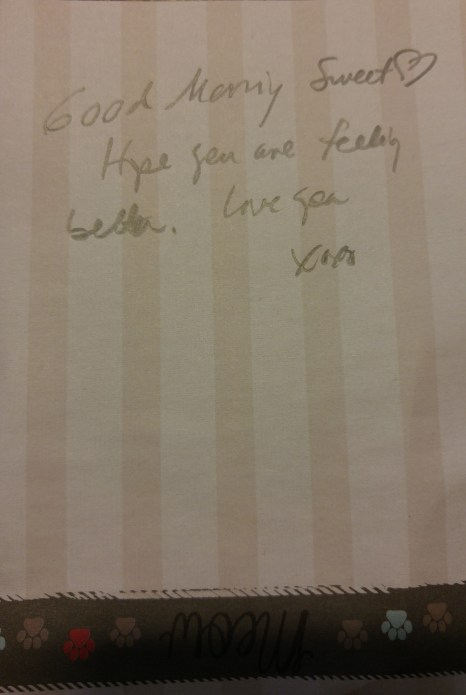 Good Morning Sweet♡
Hope you are feeling
better. Love you
xoxo
meow